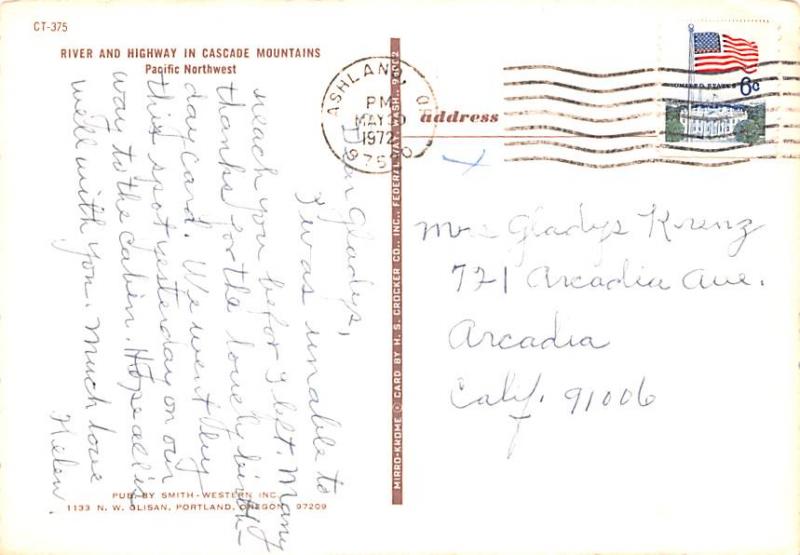 CT-375
RIVER AND HIGHWAY IN CASCADE MOUNTAINS
Pacific Northwest
Dear Gladys,
I was unable to
reach you before I left. Many
thanks for the lovely birth-
day card. We went by
this spot yesterday on our
way to the cabin. Hope all is
well with you. Much love
Helen.
PUB. BY SMITH-WESTERN INC.
1133 N. W. GLISAN, PORTLAND, OREGON 97209
MIRRO-KROME CARD BY H. S. CROCKER CO., INC., FEDERAL WAY, WASH., 98002
ASHLAND, OR
PM
MAY 30
1972
97520
UNITED STATES
6¢
address
Mrs Gladys Krenz
721 Arcadia Ave.
Arcadia
Calif. 91006